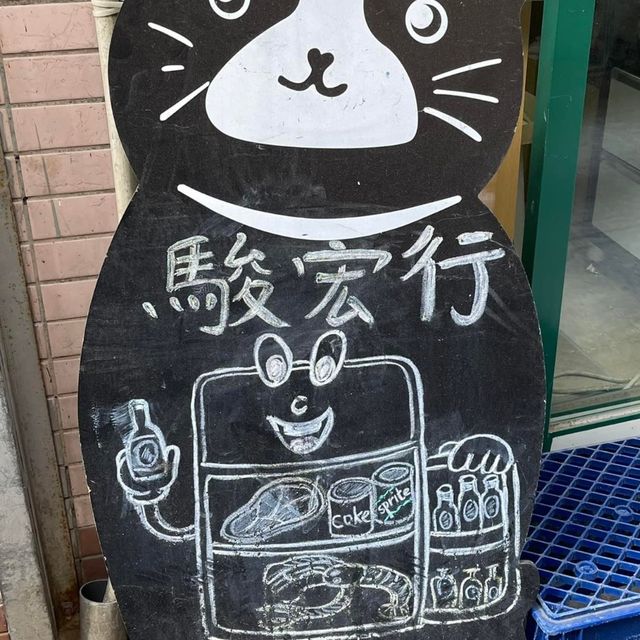 駿宏行
coke
sprite